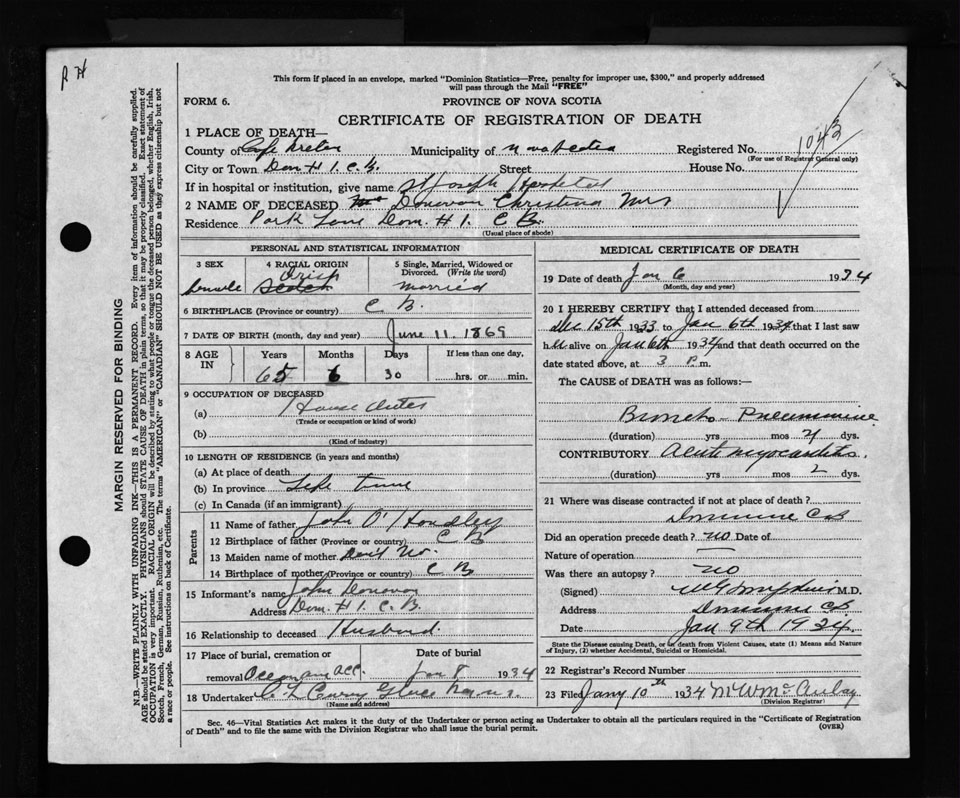 R H
This form if placed in an envelope, marked "Dominion Statistics—Free, penalty for improper use, $300," and properly addressed
will pass through the Mail "FREE"
FORM 6.
PROVINCE OF NOVA SCOTIA
CERTIFICATE OF REGISTRATION OF DEATH
1043
1 PLACE OF DEATH—
County of Cape Breton Municipality of Nova Scotia Registered No.
(For use of Registrar General only)
City or Town Dom # 1. C. B. Street House No.
If in hospital or institution, give name St Joseph Hospital
2 NAME OF DECEASED Donovan Christina Mrs
Residence Park Lane Dom. # 1. C B.
(Usual place of abode)
PERSONAL AND STATISTICAL INFORMATION
3 SEX 4 RACIAL ORIGIN 5 Single, Married, Widowed or Divorced. (Write the word)
female Scotch Irish married
6 BIRTHPLACE (Province or country) C B.
7 DATE OF BIRTH (month, day and year) June 11. 1869
8 AGE IN Years Months Days If less than one day,
65 6 30 hrs. or min.
9 OCCUPATION OF DECEASED
(a) House duties
(Trade or occupation or kind of work)
(b)
(Kind of industry)
10 LENGTH OF RESIDENCE (in years and months)
(a) At place of death
(b) In province Life time
(c) In Canada (if an immigrant)
Parents
11 Name of father John O'Handley
12 Birthplace of father (Province or country) C B
13 Maiden name of mother
14 Birthplace of mother (Province or country) C B
15 Informant's name John Donovan
Address Dom. # 1. C. B.
16 Relationship to deceased Husband.
17 Place of burial, cremation or removal Date of burial
Jan 8 1934
18 Undertaker Glace
(Name and address)
MEDICAL CERTIFICATE OF DEATH
19 Date of death Jan 6 1934
(Month, day and year)
20 I HEREBY CERTIFY that I attended deceased from
Dec 15th 1933 to Jan 6th 1934 that I last saw
h er alive on Jan 6th 1934 and that death occurred on the
date stated above, at 3 P.m.
The CAUSE of DEATH was as follows:—
Broncho - Pneumonia
(duration) yrs mos 21 dys.
CONTRIBUTORY Acute myocarditis.
(duration) yrs mos 2 dys.
21 Where was disease contracted if not at place of death?
Dominion C B
Did an operation precede death? no Date of
Nature of operation
Was there an autopsy? no
(Signed) M.D.
Address Dominion CB
Date Jan 9th 1934
State the Disease causing Death, or in deaths from Violent Causes, state (1) Means and Nature
of Injury, (2) whether Accidental, Suicidal or Homicidal.
22 Registrar's Record Number
23 Filed Jany 10th 1934 M W McAulay
(Division Registrar)
Sec. 46—Vital Statistics Act makes it the duty of the Undertaker or person acting as Undertaker to obtain all the particulars required in the "Certificate of Registration
of Death" and to file the same with the Division Registrar who shall issue the burial permit.
(OVER)
MARGIN RESERVED FOR BINDING
N.B.—WRITE PLAINLY WITH UNFADING INK—THIS IS A PERMANENT RECORD. Every item of information should be carefully supplied.
AGE should be stated EXACTLY. PHYSICIANS should STATE CAUSE OF DEATH in plain terms, so that it may be properly classified. Exact statement of
OCCUPATION is very important. RACIAL ORIGIN will be described by stating to what people or tongue the deceased person belonged, whether English, Irish,
Scotch, French, German, Russian, Ruthenian, etc. The terms "AMERICAN" or "CANADIAN" SHOULD NOT BE USED as they express citizenship but not
a race or people. See instructions on back of Certificate.